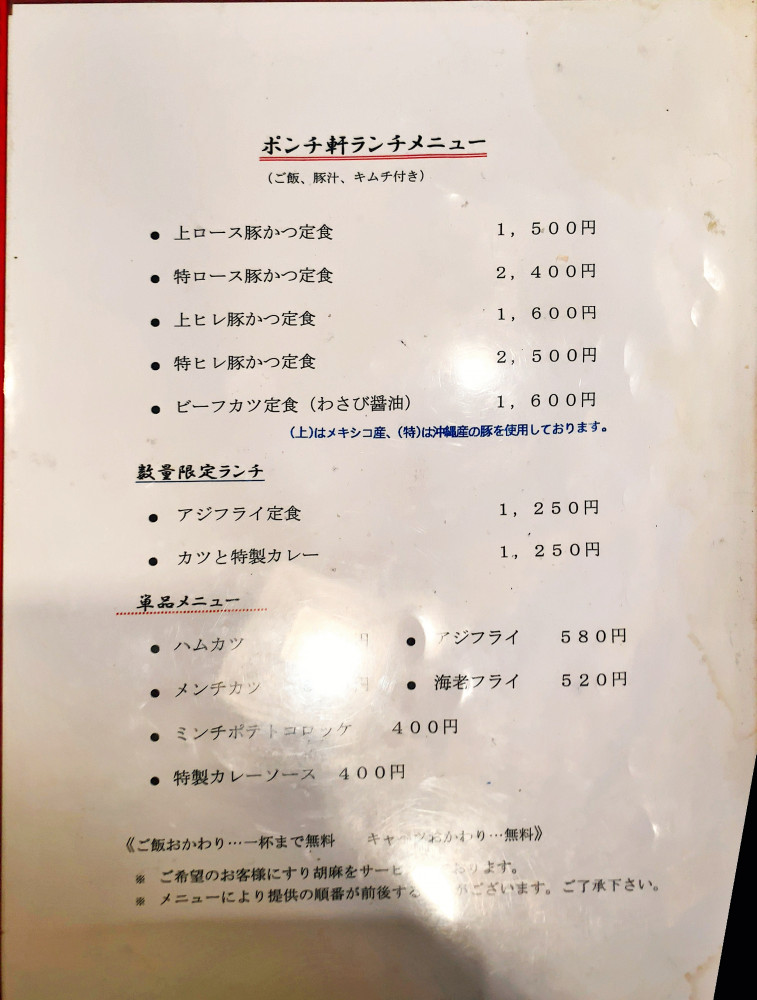 ポンチ軒ランチメニュー
(ご飯、豚汁、キムチ付き)
● 上ロース豚かつ定食 1,500円
● 特ロース豚かつ定食 2,400円
● 上ヒレ豚かつ定食 1,600円
● 特ヒレ豚かつ定食 2,500円
● ビーフカツ定食(わさび醤油) 1,600円
(上)はメキシコ産、(特)は沖縄産の豚を使用しております。
数量限定ランチ
● アジフライ定食 1,250円
● カツと特製カレー 1,250円
単品メニュー
● ハムカツ 円 ● アジフライ 580円
● メンチカツ 円 ● 海老フライ 520円
● ミンチポテトコロッケ 400円
● 特製カレーソース 400円
《ご飯おかわり…一杯まで無料 キャベツおかわり…無料》
※ ご希望のお客様にすり胡麻をサービ おります。
※ メニューにより提供の順番が前後する がございます。ご了承下さい。